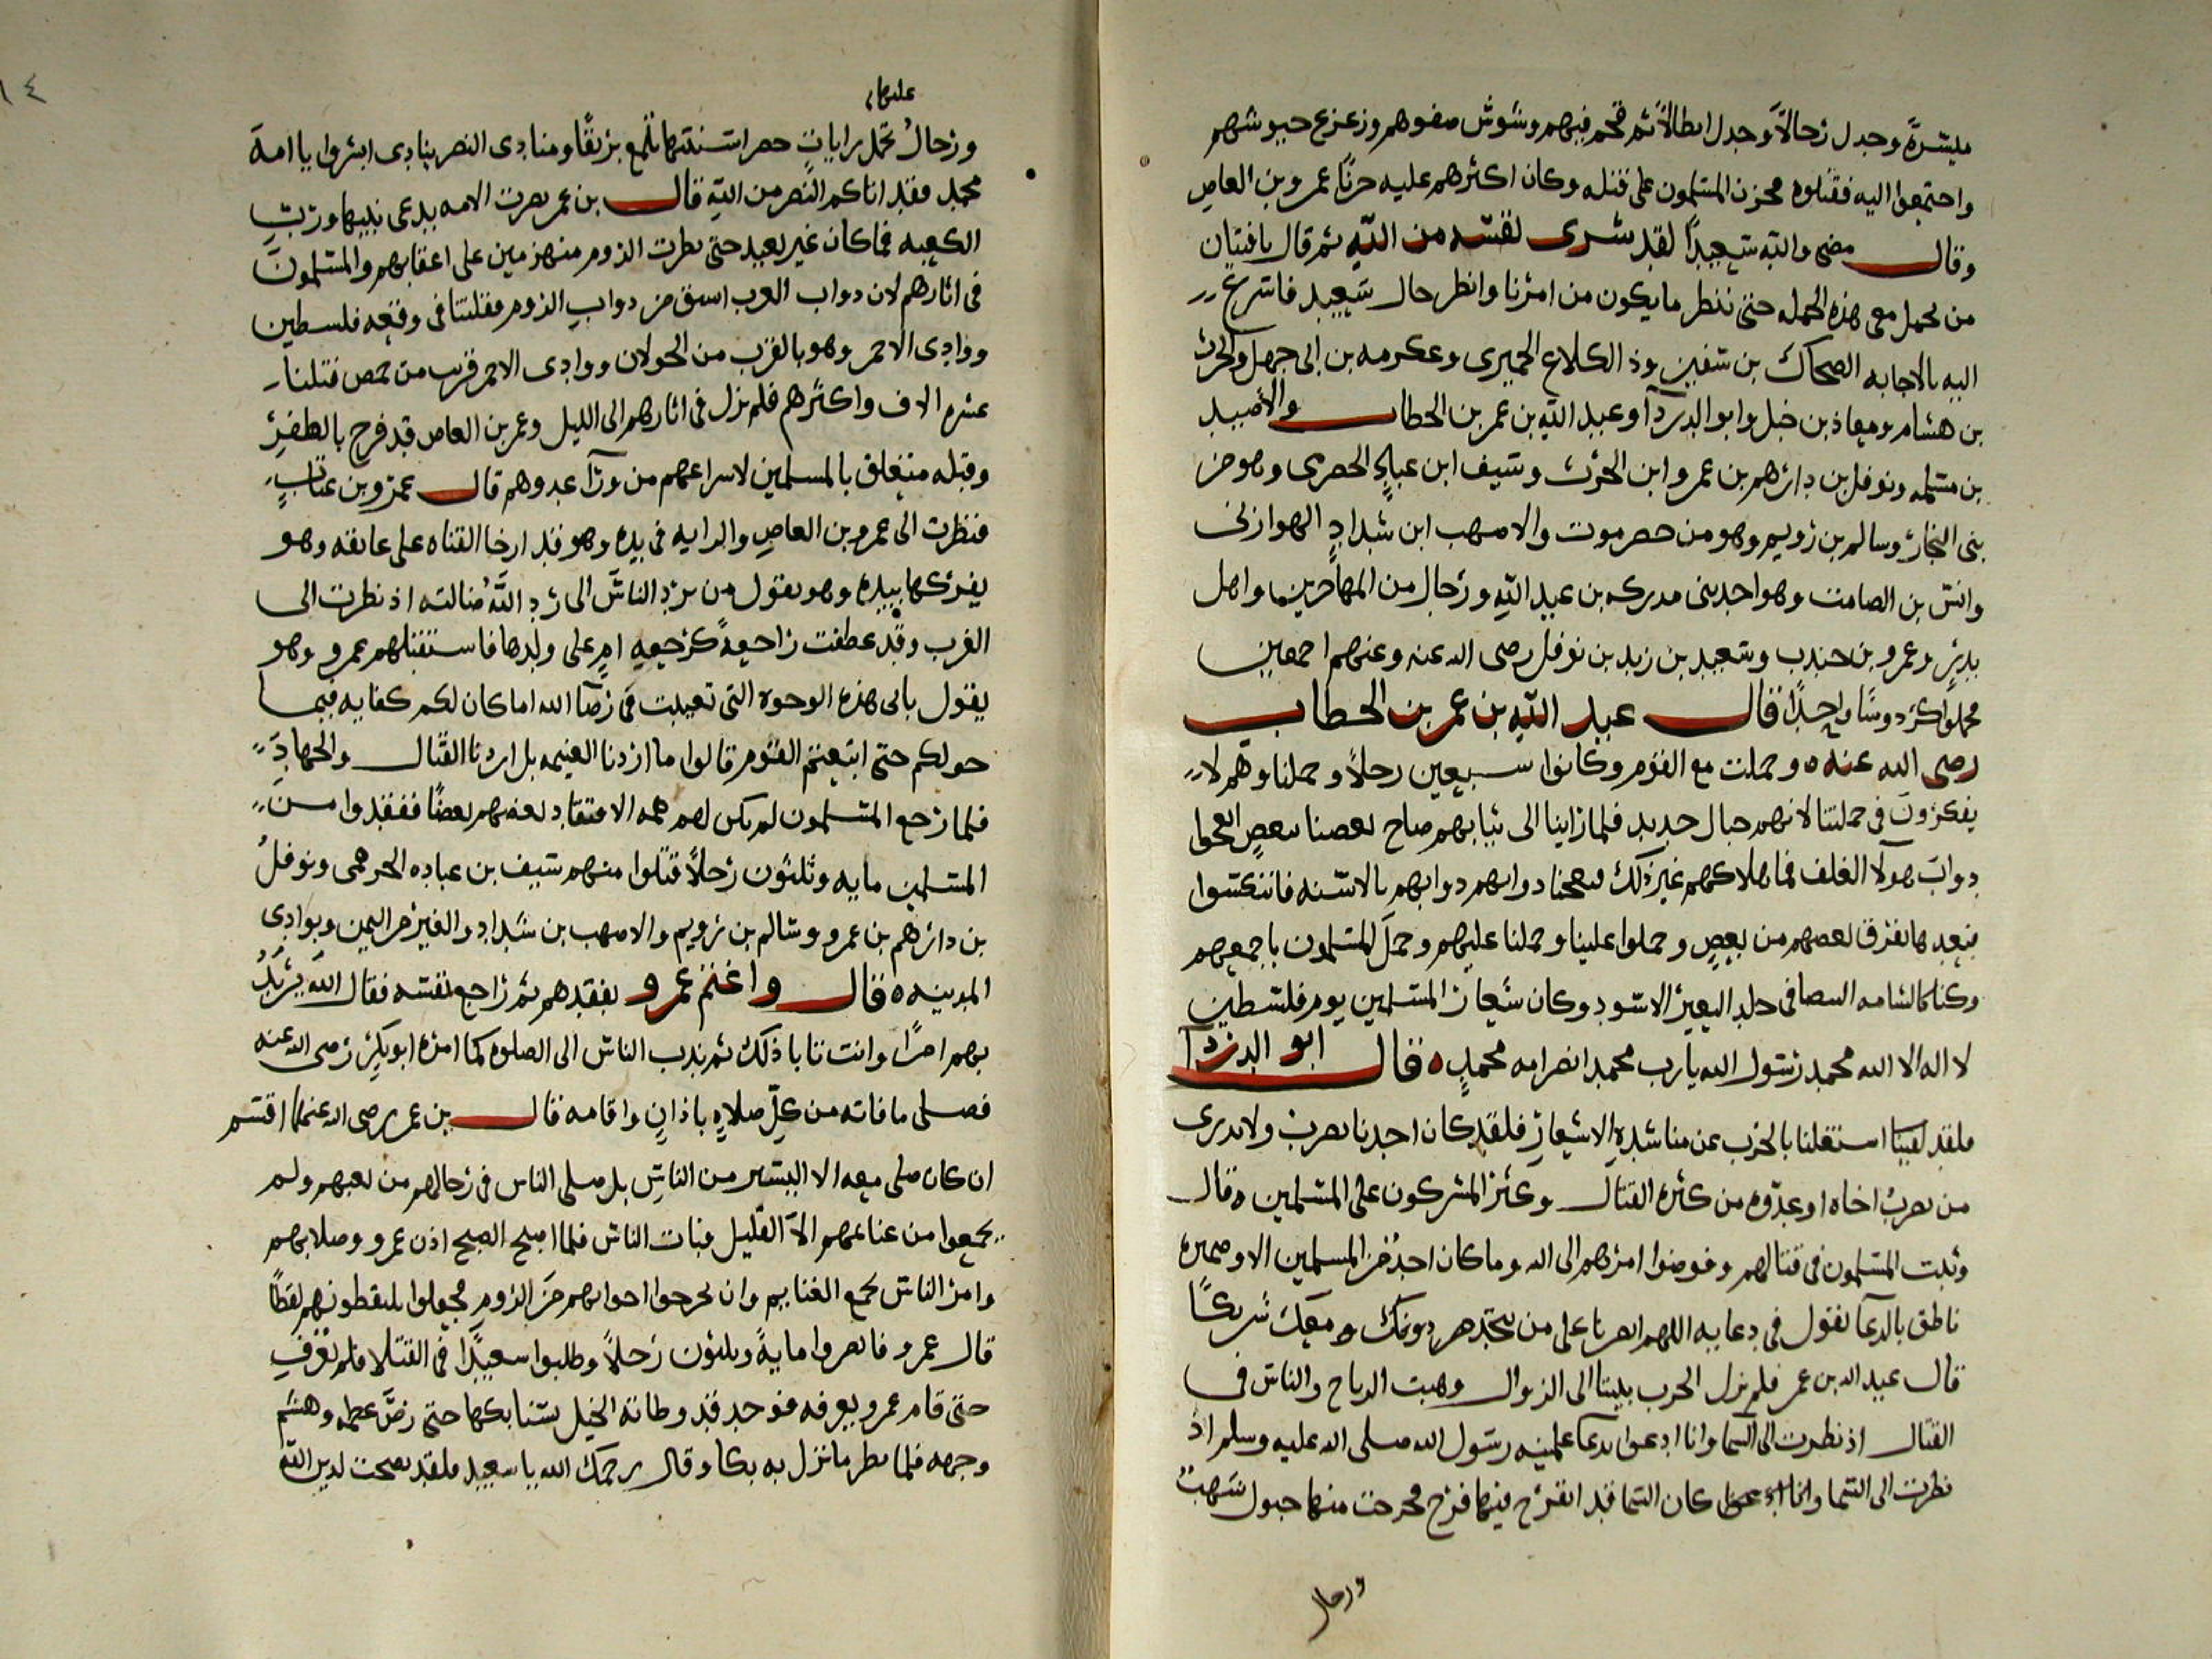 ميسرة وجدل رجالا وجدل ابطالا ثم قحم فيهم وشوش صفوفهم وزعزع جيوشهم
واجتمعوا اليه فقتلوه فحزن المسلمون على قتله وكان اكثرهم عليه حزنا عمرو بن العاص
وقال مضى والله سعيدا لقد شرى نفسه من الله ثم قال يا فتيان
من يحمل معى هذه الحمله حتى ننظر ما يكون من امرنا وانظر حال سعيد فاسرع
اليه بالاجابه الضحاك بن سفين وذ الكلاع الحميرى وعكرمه بن ابى جهل والحرث
بن هشام ومعاذ بن جبل وابو الدردآ وعبد الله بن عمر بن الخطاب والأصيد
بن مسلمه ونوفل بن دارهم بن عمرو ابن الحرث وسيف ابن عباد الحضرمى وهو من
بنى النجار وسالم بن رويم وهو من حضرموت والامهب ابن شداد الهوازنى
وانس بن الصامت وهو احد بنى مدركه بن عبد الله ورجال من المهاجرين واهل
بدر وعمرو بن جندب وسعيد بن زيد بن نوفل رضى الله عنه وعنهم اجمعين
فحملوا كردوسا واحدا قال عبد الله بن عمر بن الخطاب
رضى الله عنه وحملت مع القوم وكانوا سبعين رجلا وحملنا وهم لا
يفكرون فى حملتنا لانهم جبال حديد فلما راينا الى ثباتهم صاح بعضنا ببعض ابعجوا
دواب هولآ الغلف فما هلاكهم غير ذلك فبعجنا دوابهم بالاسنه فانتكسوا
فبعدها تفرق بعضهم من بعض وحملوا علينا وحملنا عليهم وحمل المسلمون باجمعهم
وكنا كالشامه البيضا فى جلد البعير الاسود وكان شعار المسلمين يوم فلسطين
لا اله الا الله محمد رسول الله يا رب محمد انصر امه محمد قال ابو الدردآ
فلقد لقينا اشتغلنا بالحرب عن مناشدة الاشعار فلقد كان احدنا يضرب ولا يدرى
من يضرب اخاه او عدوه من كثرة القتال وكثر المشركون على المسلمين قال
وثبت المسلمون فى قتالهم وفوضوا امرهم الى الله وما كان احد من المسلمين الا وضميره
ناطق بالدعآ يقول فى دعايه اللهم انصرنا على من يتخذ دونك ومعك شريكا
قال عبد الله بن عمر فلم يزل الحرب بيننا الى الزوال وهبت الرياح والناس فى
القتال اذ نظرت الى السما وانا ادعوا بدعا علمنيه رسول الله صلى الله عليه وسلم اذ
نظرت الى السما كان السما قد انفرج فيها فرج فخرجت منها خيول شهب
ورجال
١٤
عليها
ورجال تحمل رايات خضر اسنتها تلمع بريقا ومنادى النصر ينادى ابشروا يا امة
محمد فقد اتاكم النصر من الله قال بن عمر نصرت الامه بدعى نبيها ورب
الكعبه فما كان غير بعيد حتى نظرت الروم منهزمين على اعقابهم والمسلمون
فى اثارهم لان دواب العرب اسبق من دواب الروم فقتلنا فى وقعه فلسطين
ووادى الاحمر وهو بالقرب من الجولان ووادى الاحمر قريب من حمص قتلنا
عشره الاف واكثرهم فلم نزل فى اثارهم الى الليل وعمر بن العاص قد فرح بالظفر
وقبله متعلق بالمسلمين لاسراعهم من ورآ عدوهم قال عمرو بن عتاب
فنظرت الى عمرو بن العاص والرايه فى يده وهو قد ارخا القناه على عاتقه وهو
يفركها بيده وهو يقول من يرد الناس الى رد الله ضالته اذ نظرت الى
العرب وقد عطفت راجعة كرجيع ام على ولدها فاستقبلهم عمرو وهو
يقول بابى هذه الوجوه التى تعبت فى رضآ الله اما كان لكم كفايه فيما
حولكم حتى اتبعتم القوم قالوا ما اردنا الغنيمه بل اردنا القتال والجهاد
فلما رجع المسلمون لم يكن لهم همه الا افتقاد بعضهم بعضا ففقدوا من
المسلمين مايه وثلثون رجلا قتلوا منهم سيف بن عباده الحرهمى ونوفل
بن دارهم بن عمرو وسالم بن رويم والامهب بن شداد والغير من اليمن وبوادى
المدينه قال واغتم عمرو بفقدهم ثم راجع نفسه فقال الله يريد
بهم امرا وانت تابا ذلك ثم ندب الناس الى الصلوه كما امره ابو بكر رضى الله عنه
فصلى ما فاته من كل صلاة باذان واقامه قال بن عمر رضى الله عنهما اقسم
ان كان صلى معه الا اليسير من الناس بل صلى الناس فى رحالهم من تعبهم ولم
يجمعوا من غنايمهم الا القليل فبات الناس فلما اصبح الصبح اذن عمرو وصلا بهم
وامر الناس بجمع الغنايم وان يخرجوا اخوانهم من الروم فجعلوا يلتقطونهم لقطا
قال عمرو فاخرجوا ماية وثلثون رجلا وطلبوا سعيدا فى القتلا فلم تعرف
حتى قام عمرو يعرفه فوجد قد وطاته الخيل بسنابكها حتى رض عظمه وهشم
وجهه فلما نظر ما نزل به بكا وقال رحمك الله يا سعيد فلقد نصحت لدين الله